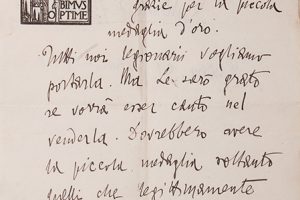 BIMUS
OPTIME
grazie per la piccola
medaglia d'oro.
Tutti noi legionarii vogliamo
portarla. Ma Le sarò grato
se vorrà esser cauto nel
venderla. Dovrebbero avere
la piccola medaglia soltanto
quelli che legittimamente